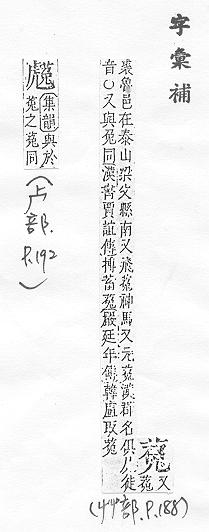 字彙補
又
菟
裘魯邑在泰山梁父縣南又飛菟神馬又元菟漢郡名俱徒
音○又與兔同漢書賈誼傳搏畜菟嚴延年傳韓盧取菟
(艸部.P.188)
集韻與於
菟之菟同
(部.P.192)